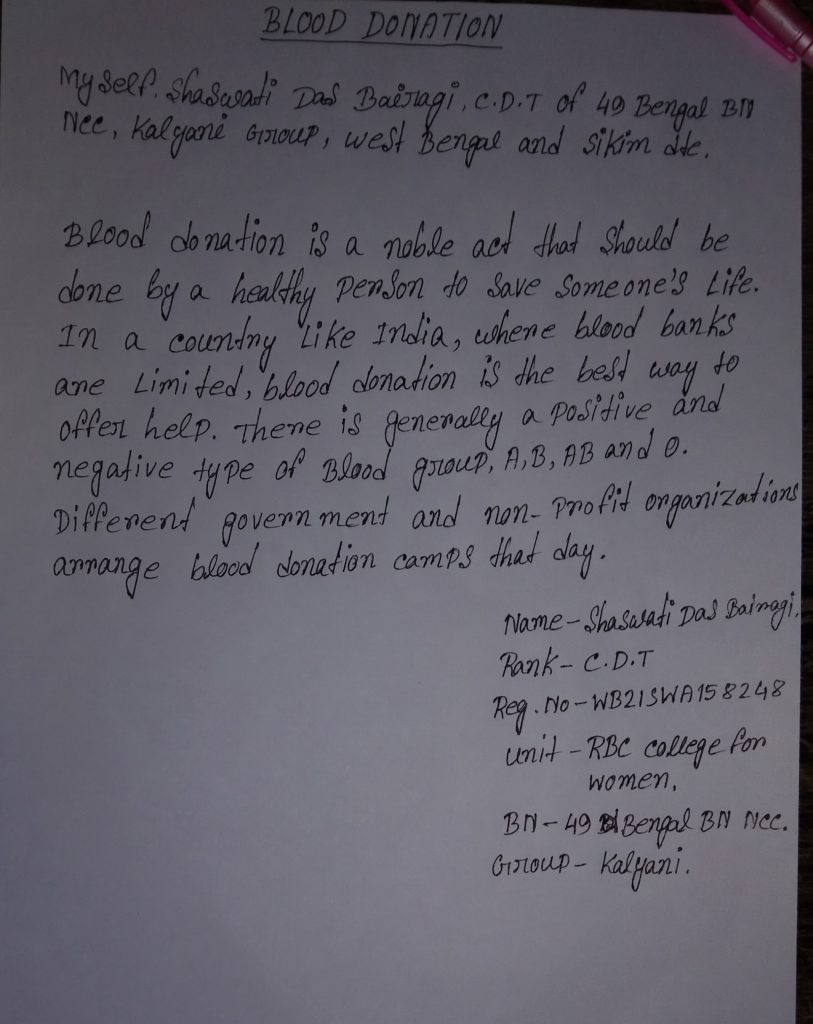 BLOOD DONATION
Myself. Shaswati Das Bairagi, C.D.T of 49 Bengal BN
NCC, Kalyani Group, west Bengal and Sikim dte.
Blood donation is a noble act that should be
done by a healthy person to save someone's life.
In a country like India, where blood banks
are Limited, blood donation is the best way to
offer help. There is generally a positive and
negative type of Blood group, A, B, AB and O.
Different government and non-profit organizations
arrange blood donation camps that day.
Name - Shaswati Das Bairagi,
Rank - C.D.T
Reg. No - WB21SWA158248
unit - RBC college for
women,
BN - 49 Bengal BN NCC.
Group - Kalyani.